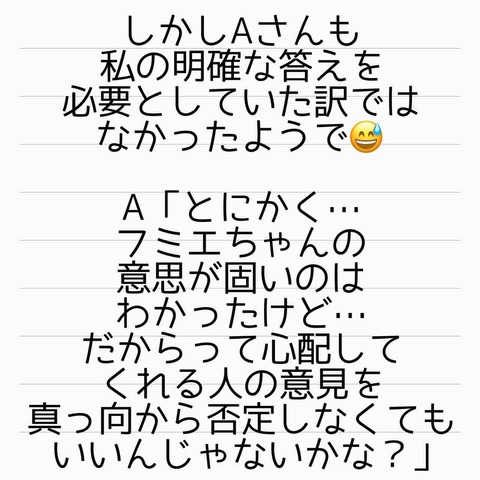 しかしAさんも
私の明確な答えを
必要としていた訳では
なかったようで😅
A「とにかく…
フミエちゃんの
意思が固いのは
わかったけど…
だからって心配して
くれる人の意見を
真っ向から否定しなくても
いいんじゃないかな？」